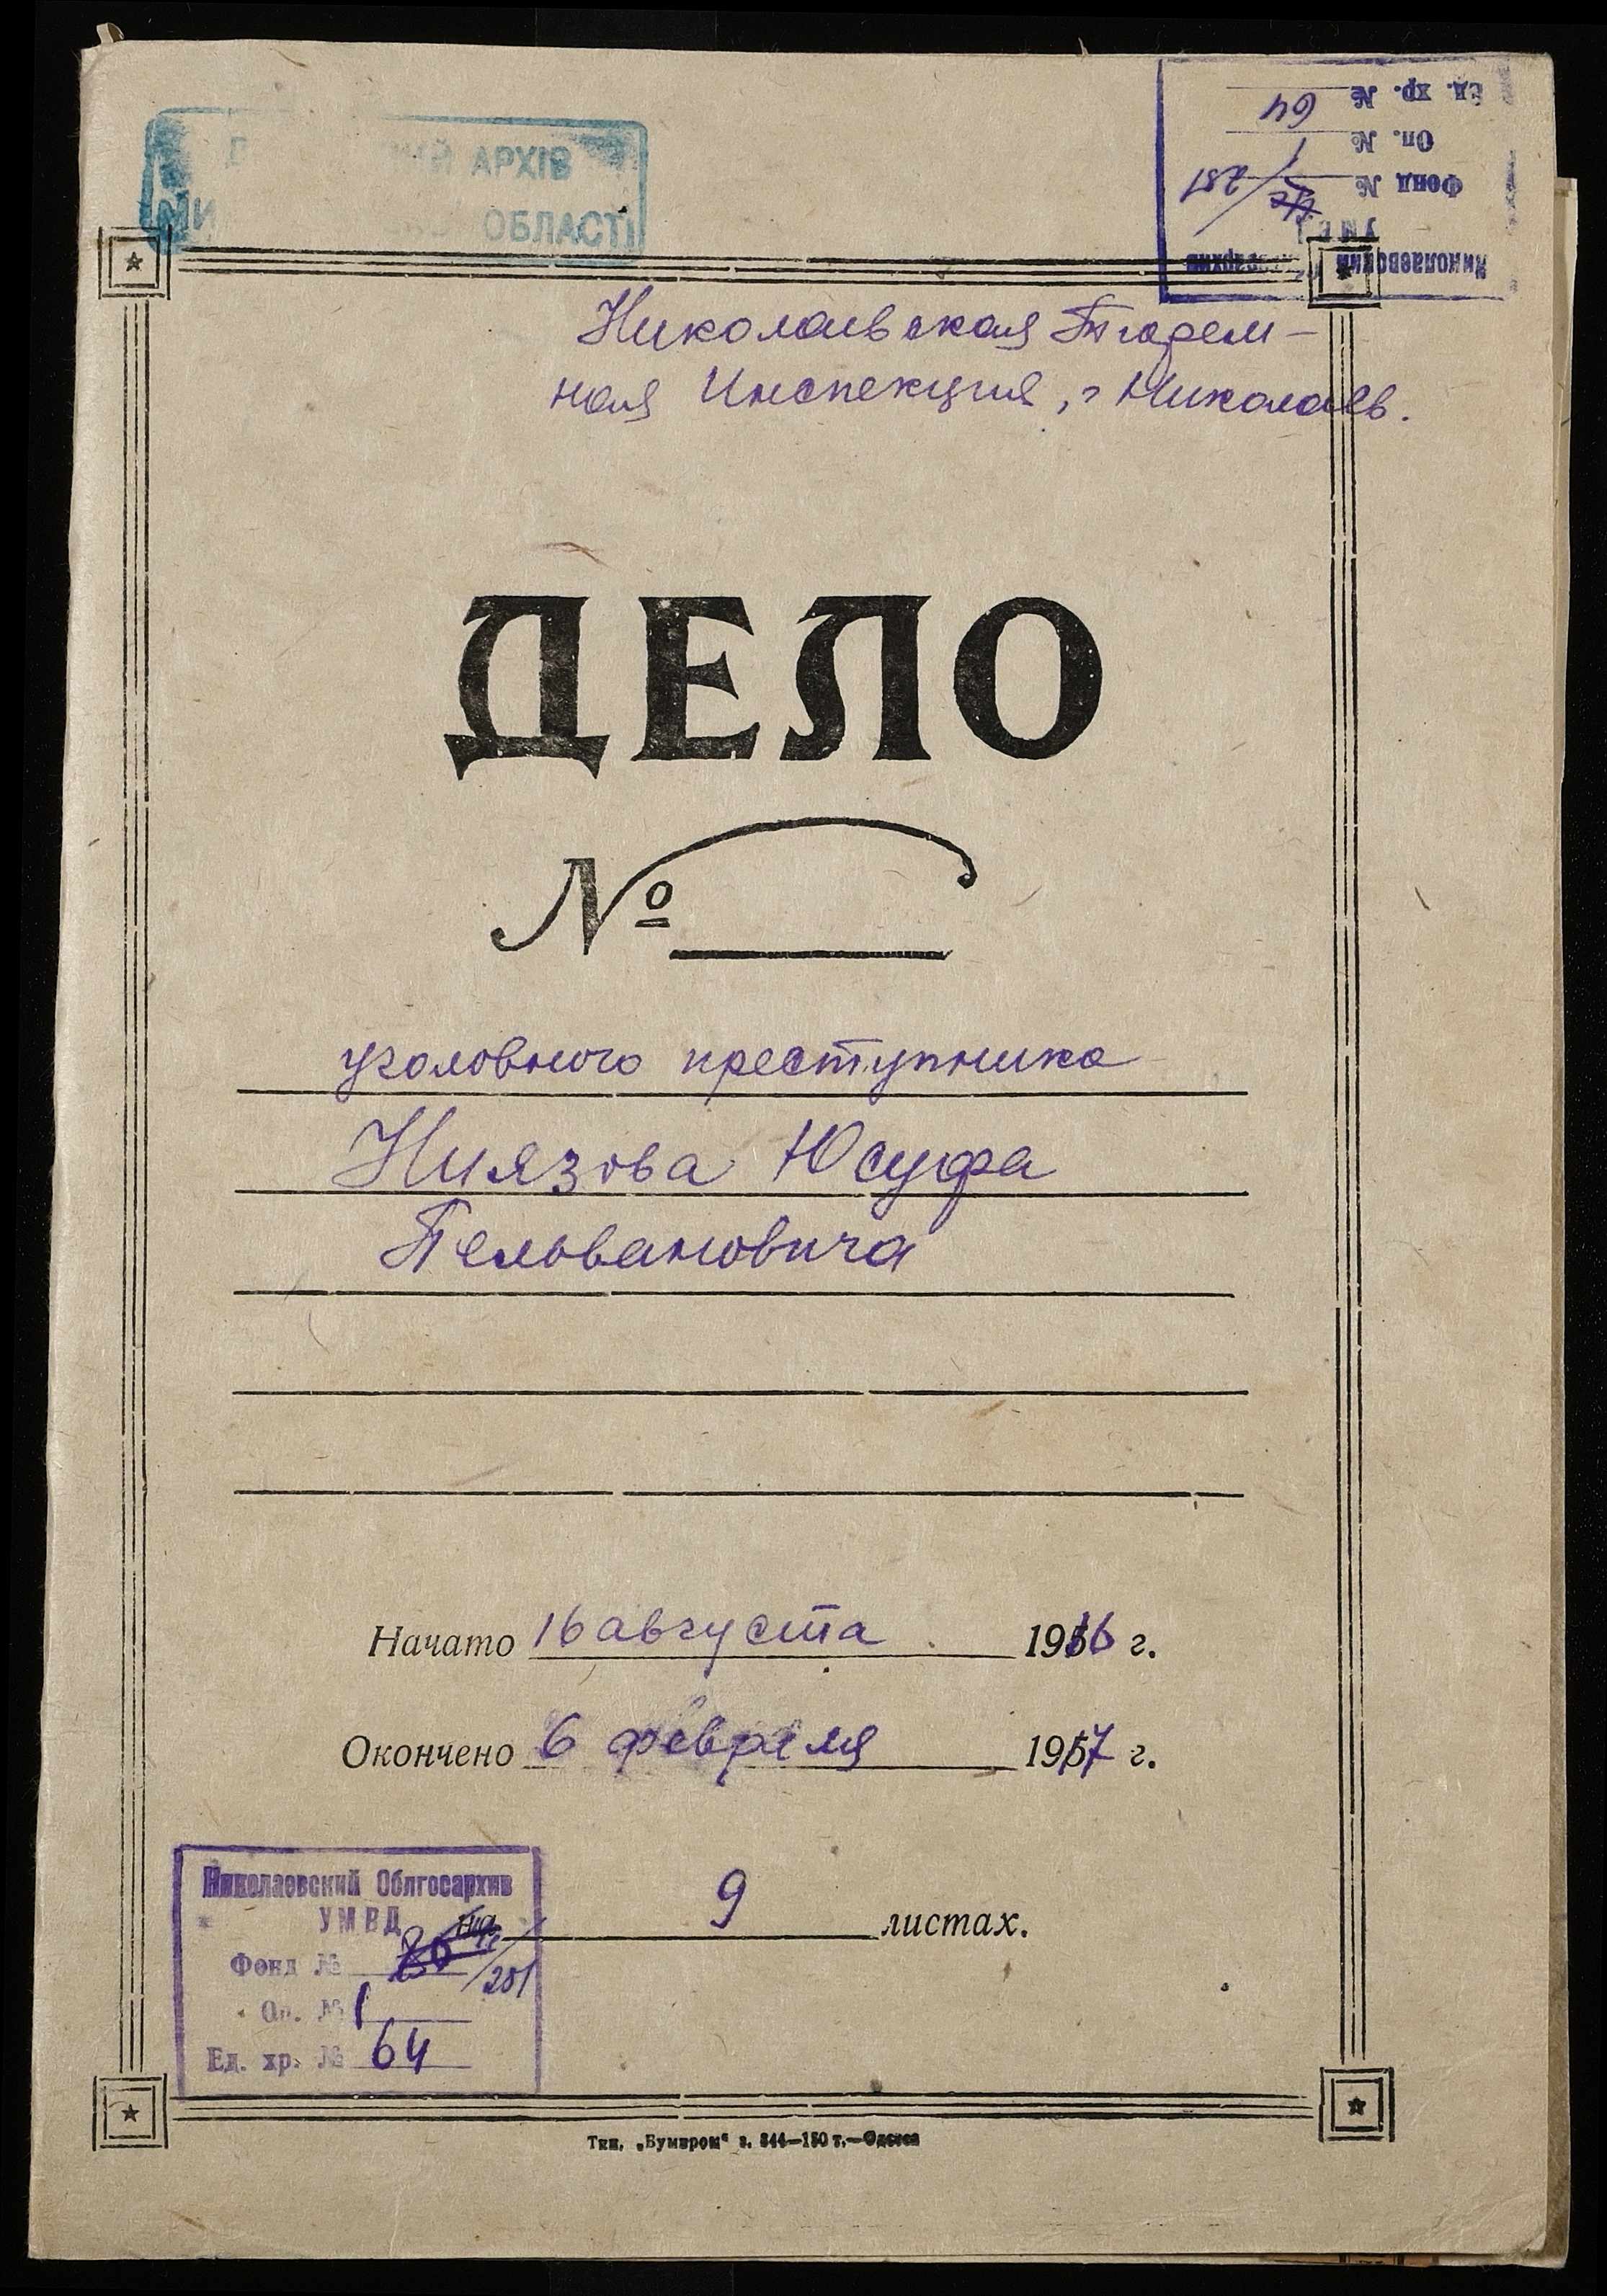 АРХІВ
ОБЛАСТІ
Ед. хр. № 64
Оп. № 1
Фонд № 281
УМВД
Николаевский
Николаевская Тюрем-
ная Инспекция, г Николаев.
ДЕЛО
№
уголовного преступника
Ниязова Юсуфа
Пельвановича
Начато 16 августа 1916 г.
Окончено 6 февраля 1917 г.
на 9 листах.
Николаевский Облгосархив
УМВД
Фонд № 281
Оп. № 1
Ед. хр. № 64
Тип. „Бумпром“ з. 844—150 т.—Одесса